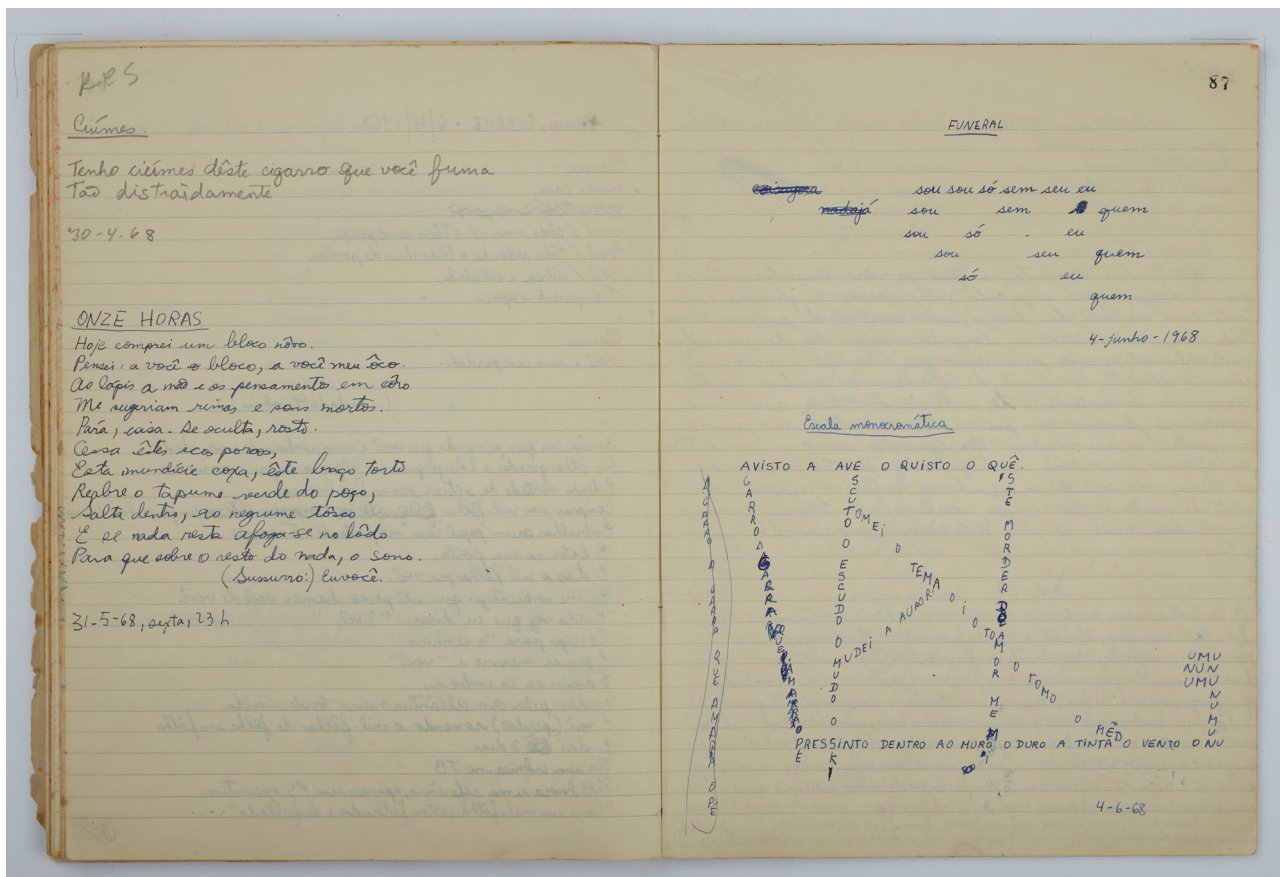 Ciúmes.
Tenho ciúmes dêste cigarro que você fuma
Tao distraìdamente
30-4-68
ONZE HORAS
Hoje comprei um bloco nôvo.
Pensei: a você o bloco, a você meu ôco.
Ao lápis a mão e os pensamentos em côro
Me sugeriam rimas e sons mortos.
Pará, casa. Se oculta, rosto.
Cessa êstes ecos porcos,
Esta imundície coxa, êste braço torto
Reabre o tapume verde do poço,
Salta dentro, ao negrume tôsco
E se nada resta afoga-se no lôdo
Para que sobre o resto do nada, o sono.
(Sussurro:) Euvocê.
31-5-68, sexta, 23 h
87
FUNERAL
sou sou só sem seu eu
nadajá sou sem quem
sou só eu
sou seu quem
só eu
quem
4-junho-1968
Escala monocromática
AVISTO A AVE O QUISTO O QUÊ.
AGARRO A GARRA QUE AMARRA O PÉ
SCUTO O ESCUDO O MUDO O
TOMEI O TEMA O
MUDEI A AURORA O
O TOMO O MÊD
STE MORDER
AMOR ME
UMU
NUN
UMU
N
U
M
U
PRESSINTO DENTRO AO MURO O DURO A TINTA O VENTO O NU
4-6-68